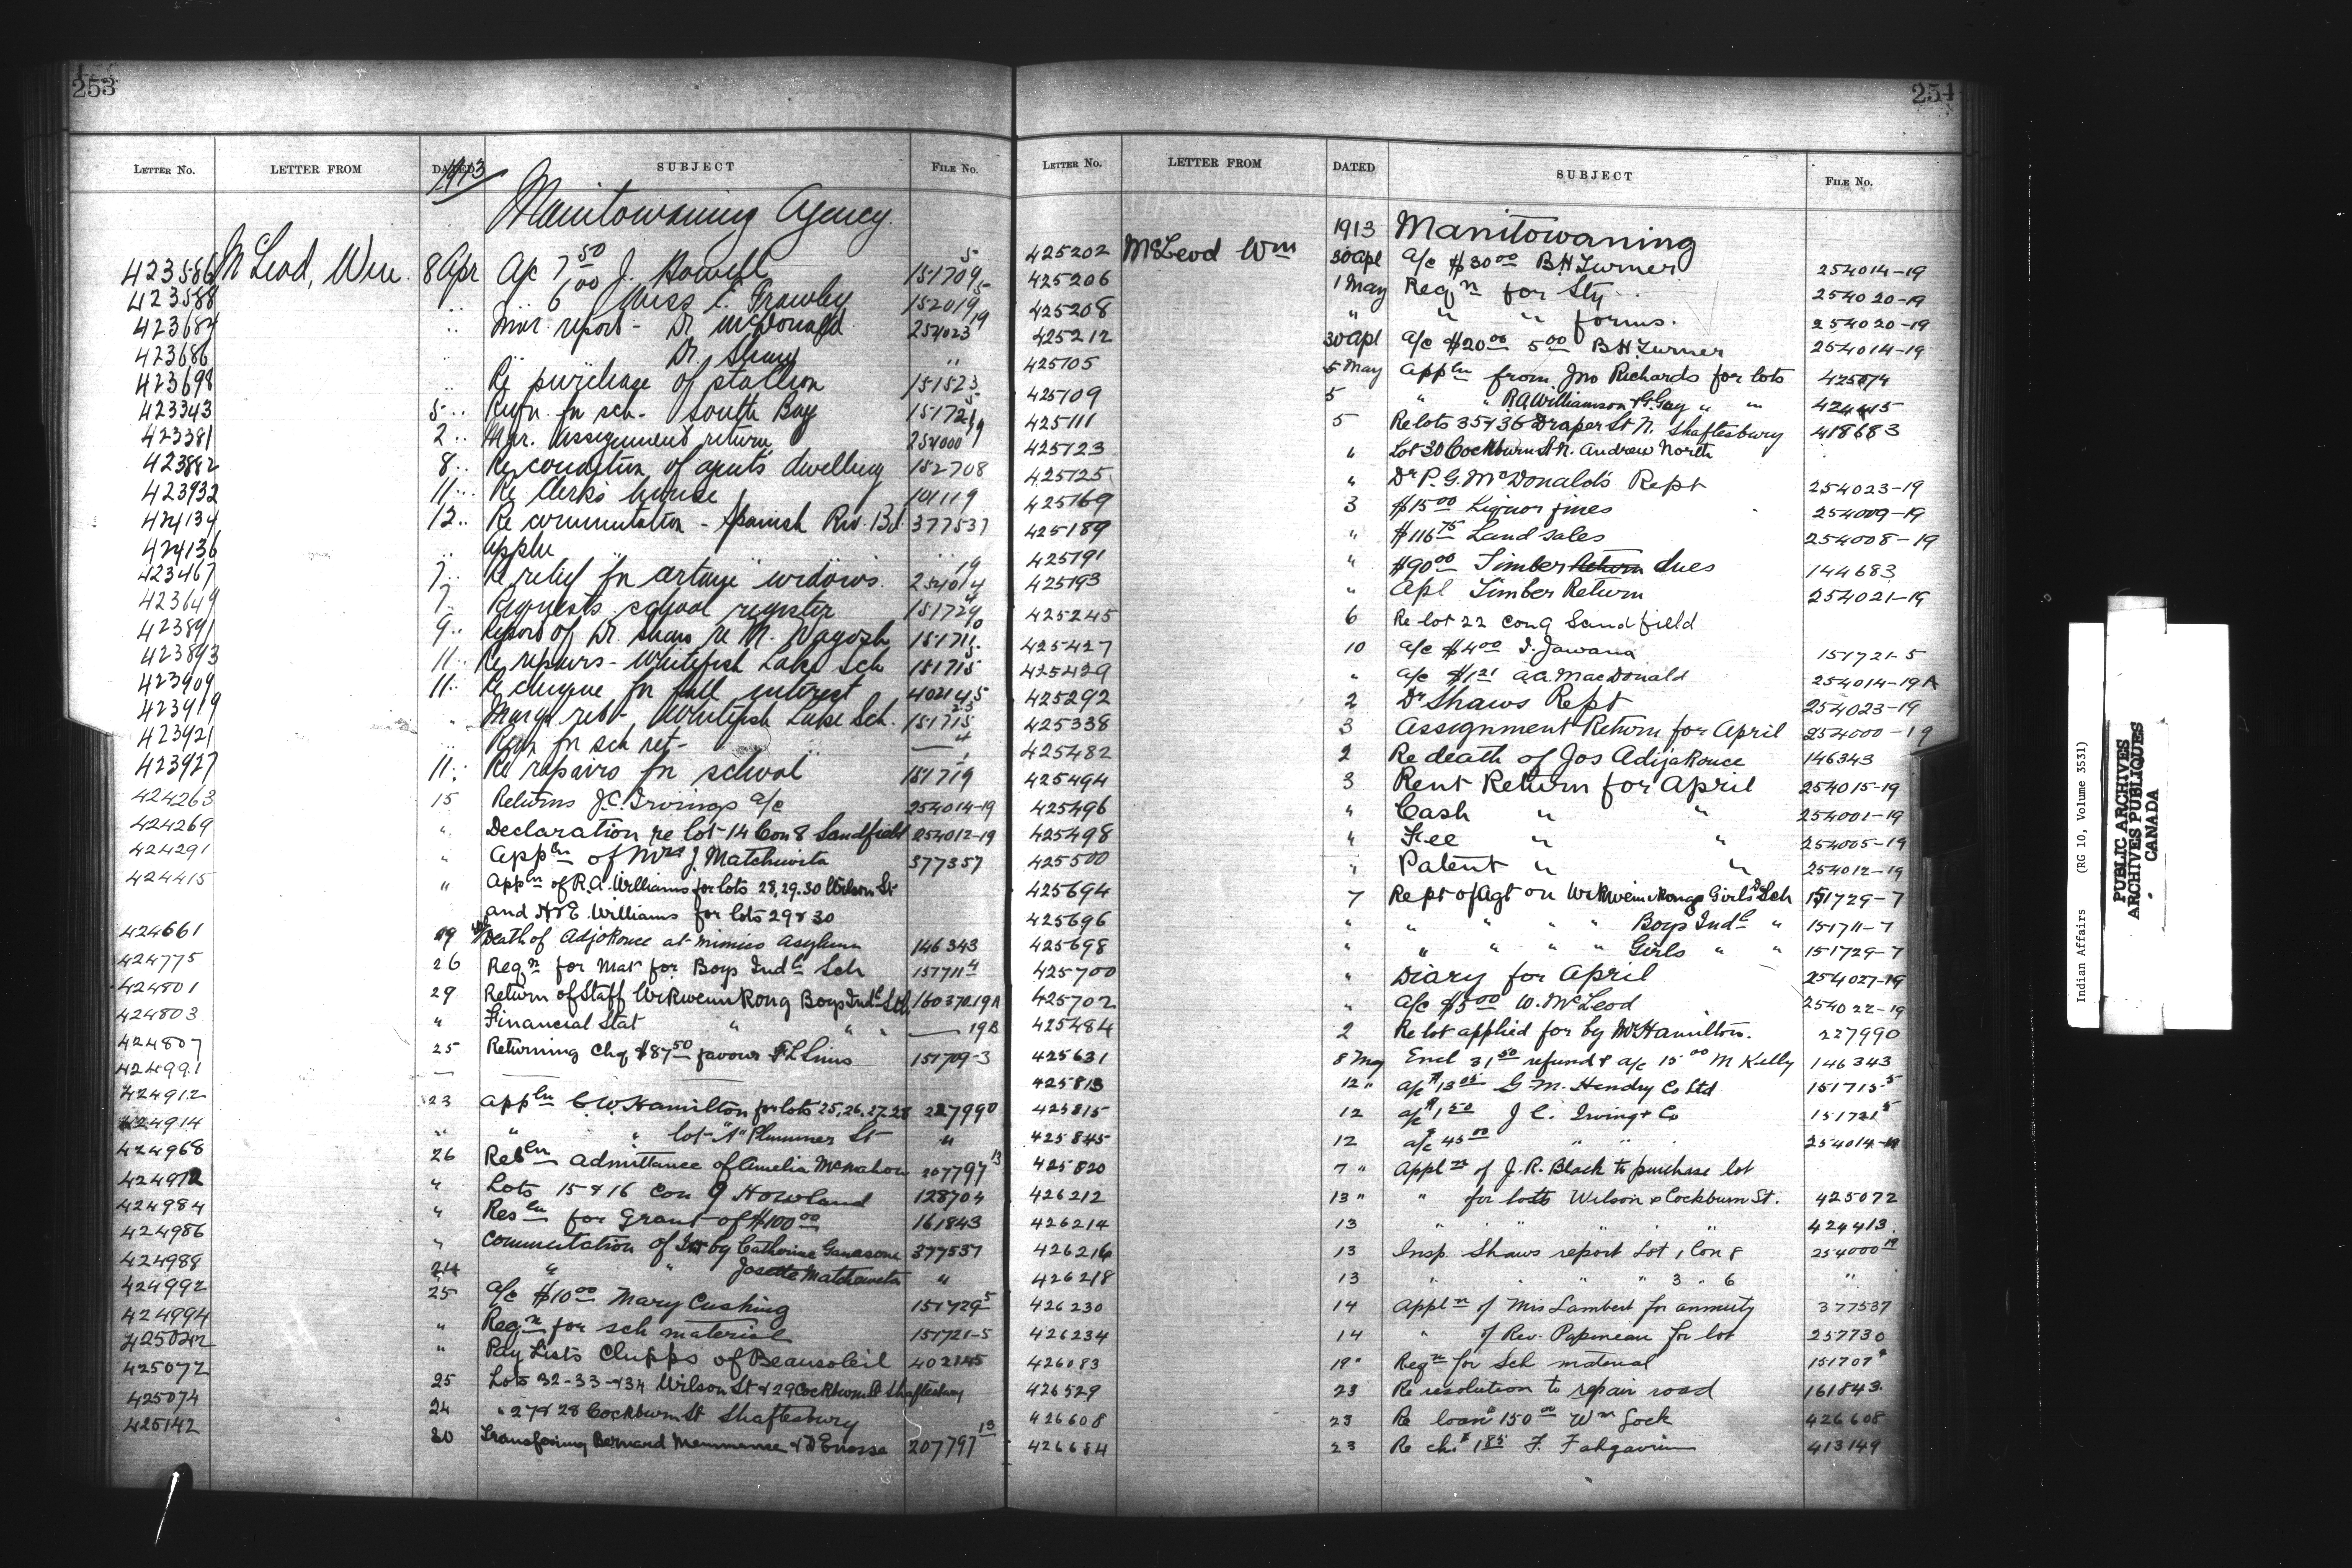 253
LETTER No. LETTER FROM DATED SUBJECT FILE No.
1913
Manitowaning Agency
423586 McLeod, Wm. 8 Apr A/c 7 50 J. Howell 151709 5
423588 " 6 00 Miss E. Frawley 152019 5
423684 " Mar. report - Dr McDonald 254023 19
423686 " Dr. Shaw "
423698 " Re purchase of stallion 151523
423343 5 " Reqn. for sch - South Bay 151721 5
423381 2 " Mar. Assignment return 254000 19
423882 8 " Re condition of agents dwelling 152708
423932 11 " Re Clerk's house 101119
424134 12 " Re commutation - Spanish Riv. Bd. 377537
424136 " Appln " "
423467 7 " Re relief for certain widows 254014 19
423649 7 " Requests school register 151729
423891 9 " Report of Dr. Shaw re M. 151711
423893 11 " Re repairs - Whitefish Lake Sch 151715
423909 11 " Re cheque for full interest 402145
423919 " March ret -, Whitefish Lake Sch. 151715
423921 " Reqn for sch ret - "
423927 11 " Re repairs for school 151719
424263 15 Returns J.C. Irvings a/c 254014-19
424269 " Declaration re lot 14 Con 8 Sandfield 254012-19
424291 " Appln of Mrs J. Matchiwita 377357
424415 " Appln of R.A. Williams for lots 28, 29. 30 Wilson St
and H & E. Williams for lots 29 & 30
424661 19 Death of Adjokouce at Mimico Asylum 146343
424775 26 Reqn for Mat for Boys Indl Sch 151711 4
424801 29 Return of Staff Wikwemikong Boys Indl Sch 160370.19A
424803 " Financial Stat " " " 19B
424807 25 Returning Chq $87 50 favour F L Sims 151709-3
424991
424912 23 Appln C W. Hamilton for lots 25, 26, 27, 28 227990
424914 " " " lot "A" Plummer St "
424968 26 Resln Admittance of Amelia McMahon 207797 13
424972 " Lots 15 & 16 Con 9 Howland 128704
424984 " Resln for Grant of $100 00 161843
424986 " Commutation of by Catherine 377537
424989 24 " " Josette Matchewita "
424992 25 A/c $10 00 Mary Cushing 151729 5
424994 " Reqn for sch material 151721-5
" Pay Lists Chipps of Beausoleil 402145
425072 25 Lots 32-33-&34 Wilson St & 29 Cockburn St Shaftesbury
425074 24 " 27 & 28 Cockburn St Shaftesbury
425142 30 Transfering Bernard & D 207797 13
254
LETTER No. LETTER FROM DATED SUBJECT FILE No.
1913 Manitowaning
425202 McLeod Wm 30 Apl A/c $30 00 B H Turner 254014-19
425206 1 May Reqn for Sty 254020-19
425208 " " " forms. 254020-19
425212 30 Apl A/c $20 00 5 00 B H. Turner 254014-19
425105 5 May Appln from Jno Richards for lots
425109 5 " " R A Williamson & G. Gay " "
425111 5 Re lots 35 & 36 Draper St N. Shaftesbury 418683
425123 " Lot 30 Cockburn St N. Andrew North
425125 " Dr P. G. McDonalds Rept 254023-19
425169 3 $15 00 Liquor fines 254009-19
425189 " $116 75 Land sales 254008-19
425191 " $90 00 Timber Return dues 144683
425193 " Apl Timber Return 254021-19
425245 6 Re lot 22 Con 9 Sandfield
425427 10 A/c $4 00 I. Jawana 151721-5
425429 " A/c $1 21 A.A. MacDonald 254014-19 A
425292 2 Dr Shaws Rept 254023-19
425338 3 Assignment Return for April 254000-19
425482 2 Re death of Jos Adjokouce 146343
425494 3 Rent Return for April 254015-19
425496 " Cash " " 254001-19
425498 " Fee " " 254005-19
425500 " Patent " " 254012-19
425694 7 Rept of Agt on Wikwemikong Girls Sch 151729-7
425696 " " " " Boys Indl " 151711-7
425698 " " " " Girls " " 151729-7
425700 " Diary for April 254027-19
425702 " A/c $5 00 W. McLeod 254022-19
425484 2 Re lot applied for by Mr Hamilton. 227990
425631 8 May Encl 31 50 refund & a/c 15 00 M Kelly 146343
425813 12 " a/c G. M. Hendry Co Ltd 151715-5
425815 12 a/c $1 50 J C. Irving & Co 151721 5
425845 12 a/c 45 00 " " 254014-19
425820 7 " Appln of J. R. Black to purchase lot
426212 13 " " for lots Wilson & Cockburn St. 425072
426214 13 " " " " 424413.
426216 13 Insp. Shaws report Lot 1 Con 8 254000 19
426218 13 " " " " 3 " 6 "
426230 14 Appln of Mrs Lambert for annuity 377537
426234 14 " of Rev. Papineau for lot 257730
426083 19 " Reqn for Sch material 151707
426529 23 Re resolution to repair road 161843.
426608 23 Re loan $150 00 Wm Gock 426608
426684 23 Re chq 413149
Indian Affairs (RG 10, Volume 3531)
PUBLIC ARCHIVES
ARCHIVES PUBLIQUES
CANADA